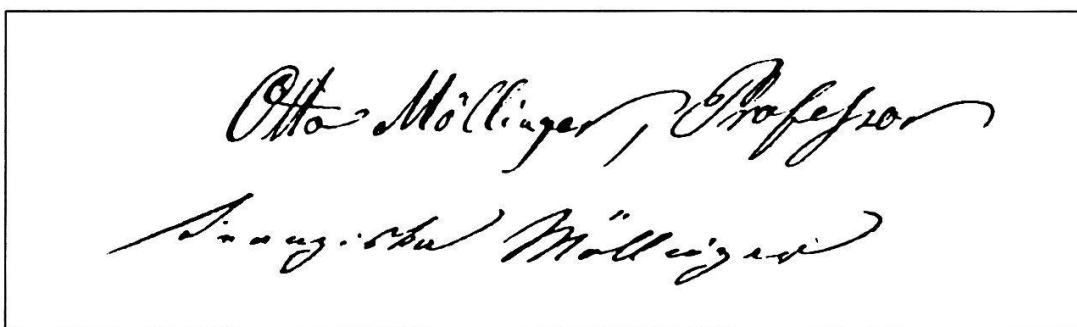 Otto Möllinger, Professor
Franziska Möllinger